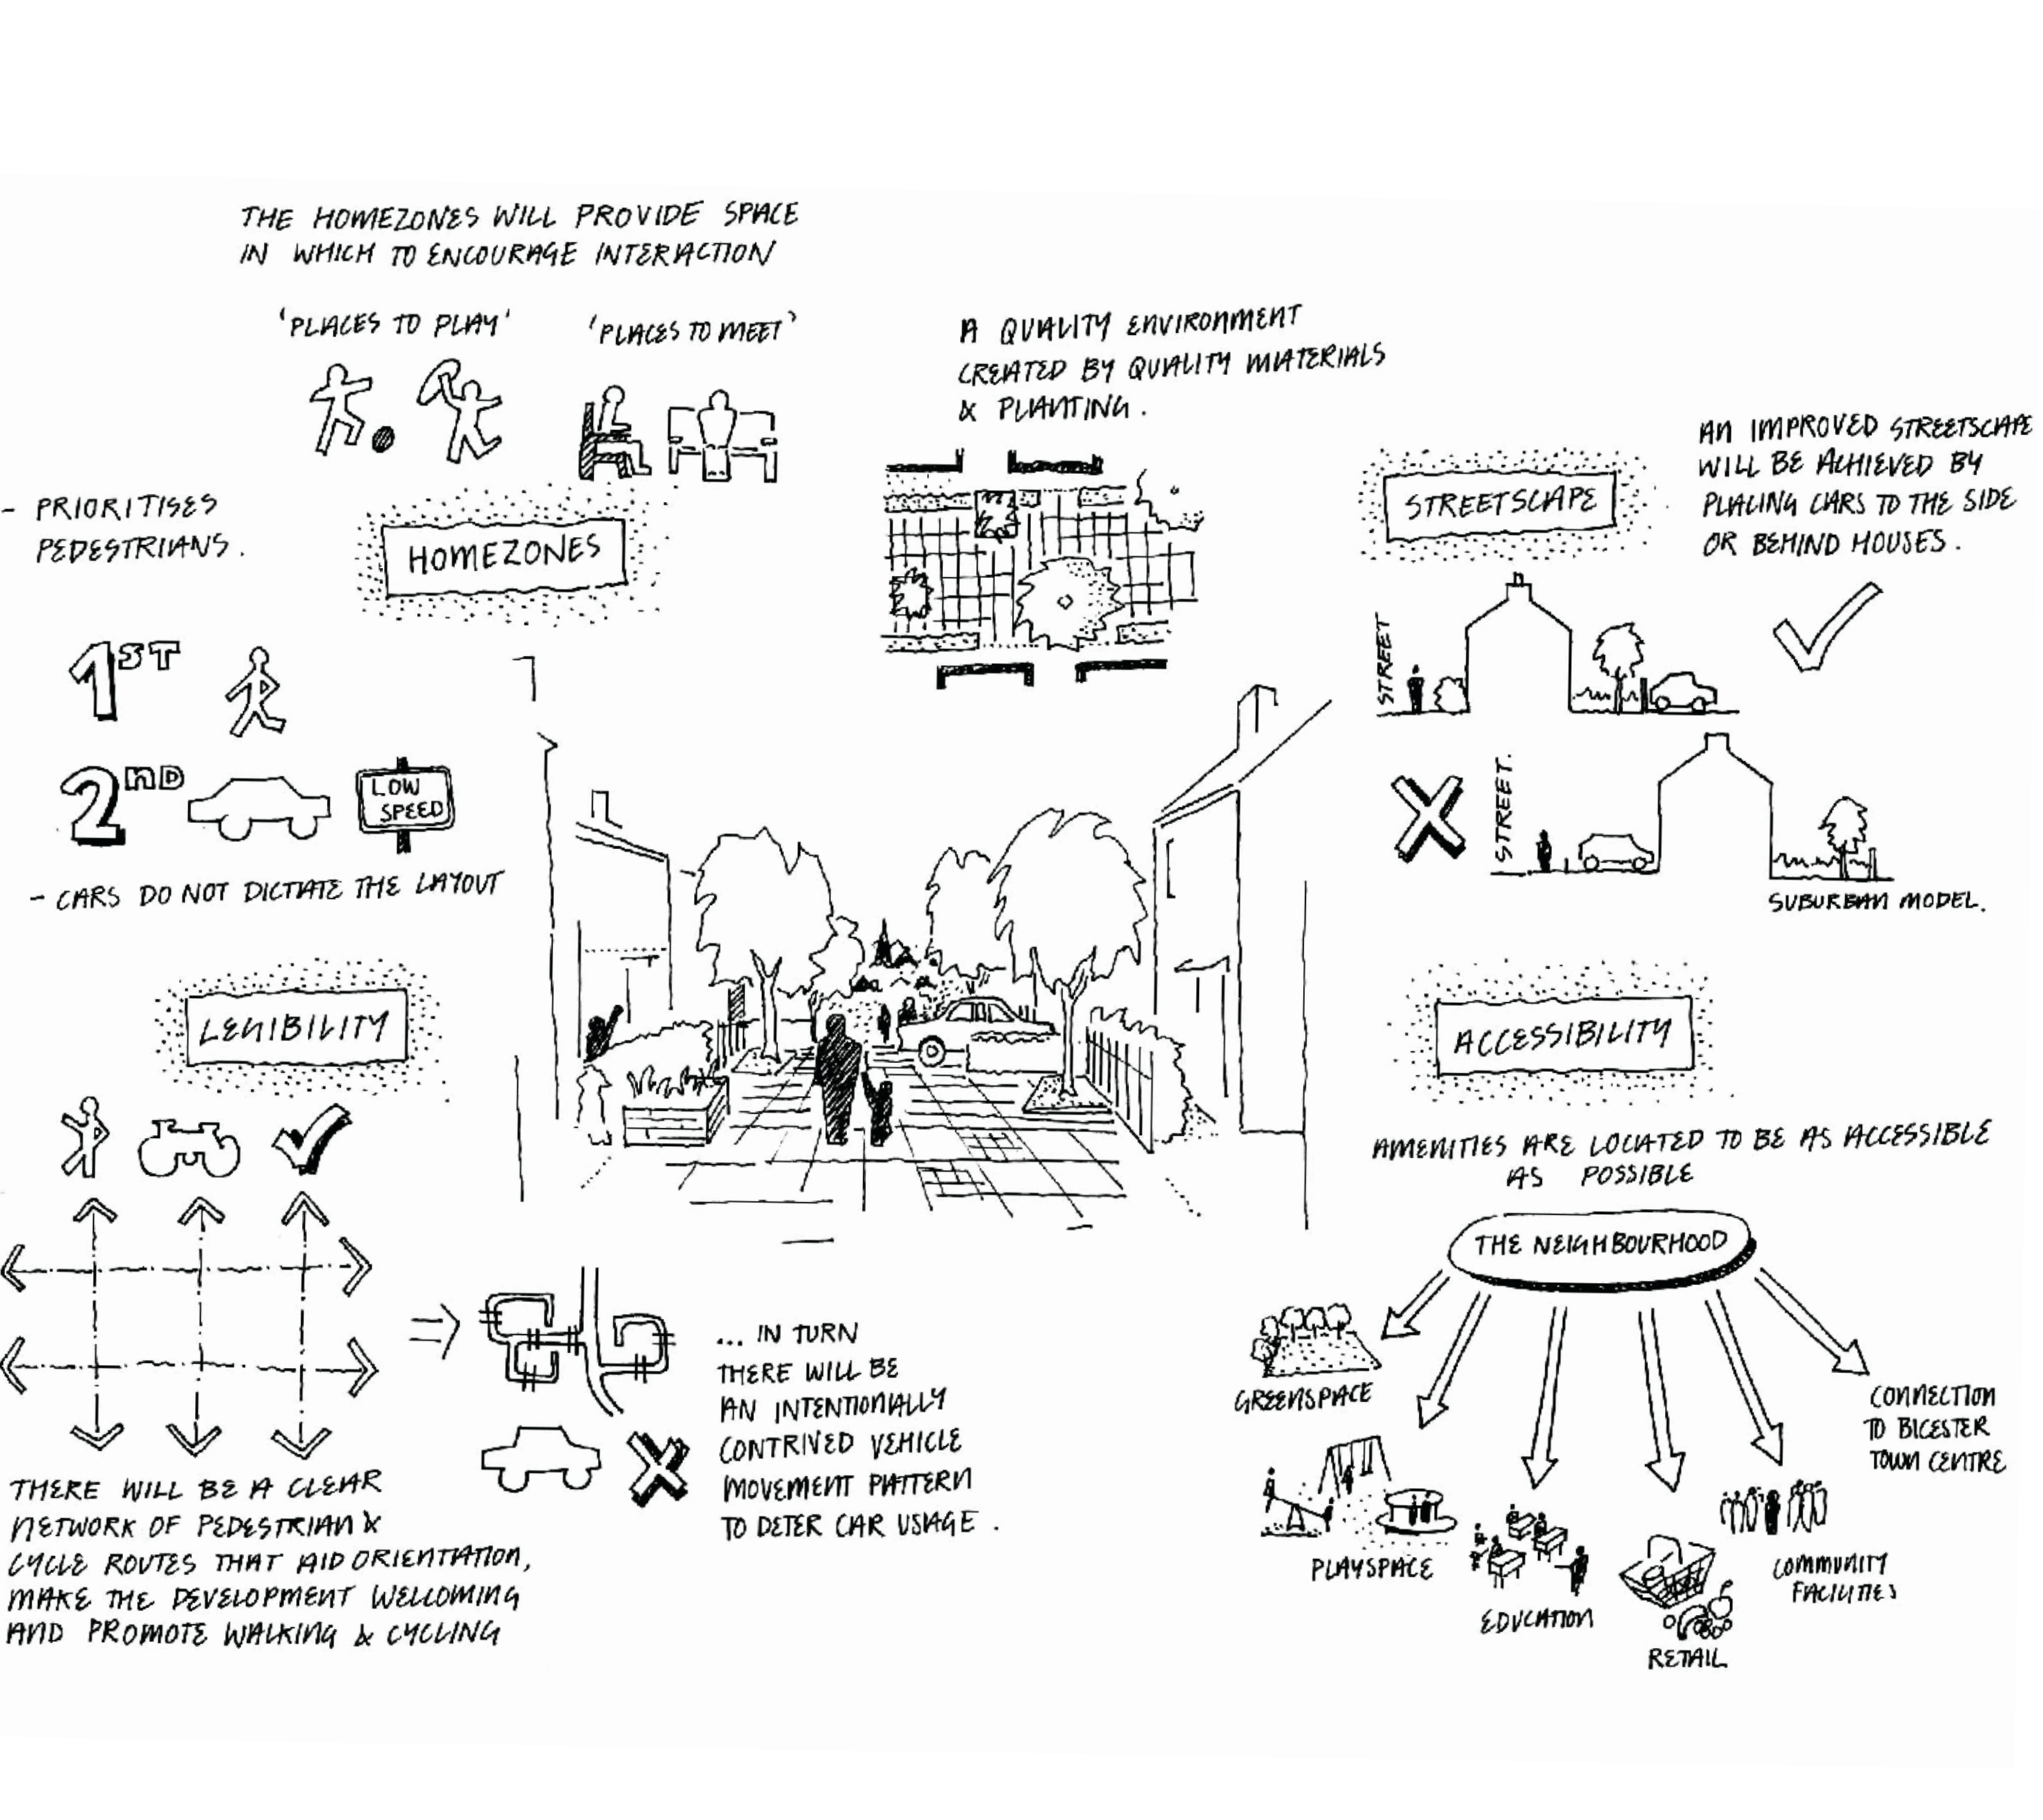 THE HOMEZONES WILL PROVIDE SPACE
IN WHICH TO ENCOURAGE INTERACTION
'PLACES TO PLAY'
'PLACES TO MEET'
- PRIORITISES
PEDESTRIANS.
HOMEZONES
1ST
2ND
LOW
SPEED
- CARS DO NOT DICTATE THE LAYOUT
A QUALITY ENVIRONMENT
CREATED BY QUALITY MATERIALS
& PLANTING.
STREETSCAPE
AN IMPROVED STREETSCAPE
WILL BE ACHIEVED BY
PLACING CARS TO THE SIDE
OR BEHIND HOUSES.
STREET
STREET.
SUBURBAN MODEL.
LEGIBILITY
THERE WILL BE A CLEAR
NETWORK OF PEDESTRIAN &
CYCLE ROUTES THAT AID ORIENTATION,
MAKE THE DEVELOPMENT WELCOMING
AND PROMOTE WALKING & CYCLING
... IN TURN
THERE WILL BE
AN INTENTIONALLY
CONTRIVED VEHICLE
MOVEMENT PATTERN
TO DETER CAR USAGE.
ACCESSIBILITY
AMENITIES ARE LOCATED TO BE AS ACCESSIBLE
AS POSSIBLE
THE NEIGHBOURHOOD
GREENSPACE
PLAYSPACE
EDUCATION
RETAIL
COMMUNITY
FACILITIES
CONNECTION
TO BICESTER
TOWN CENTRE